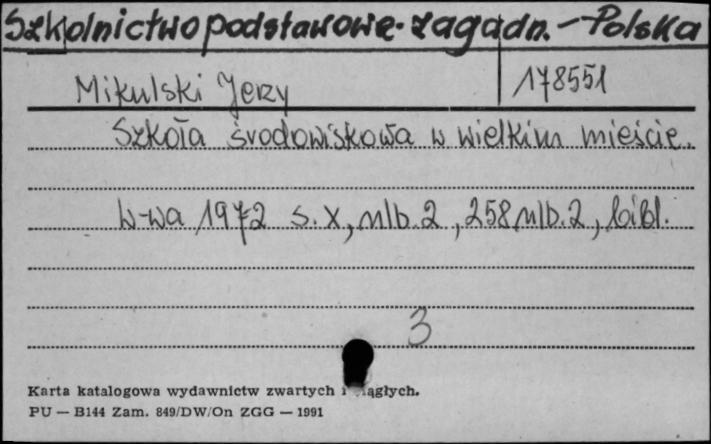 Szkolnictwo podstawowe - zagadn. - Polska
Mikulski Jerzy 178551
Szkoła środowiskowa w wielkim mieście.
W-wa 1972 s. X, nlb. 2, 258 nlb. 2, bibl.
3
Karta katalogowa wydawnictw zwartych i ągłych.
PU — B144 Zam. 849/DW/On ZGG — 1991